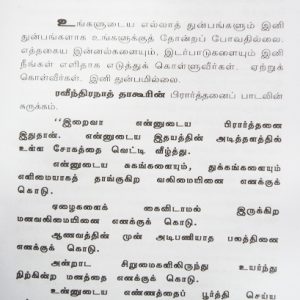 உங்களுடைய எல்லாத் துன்பங்களும் இனி
துன்பங்களாக உங்களுக்குத் தோன்றப் போவதில்லை.
எத்தகைய இன்னல்களையும், இடர்பாடுகளையும் இனி
நீங்கள் எளிதாக எடுத்துக் கொள்ளுவீர்கள். ஏற்றுக்
கொள்வீர்கள். இனி துன்பமில்லை.
ரவீந்திரநாத் தாகூரின் பிரார்த்தனைப் பாடலின்
சுருக்கம்.
"இறைவா என்னுடைய பிரார்த்தனை
இதுதான். என்னுடைய இதயத்தின் அடித்தளத்தில்
உள்ள சோகத்தை வெட்டி வீழ்த்து.
என்னுடைய சுகங்களையும், துக்கங்களையும்
எளிமையாகத் தாங்குகிற வலிமையினை எனக்குக்
கொடு.
ஏழைகளைக் கைவிடாமல் இருக்கிற
மனவலிமையினை எனக்குக் கொடு.
ஆணவத்தின் முன் அடிபணியாத பலத்தினை
எனக்குக் கொடு.
அன்றாட சிறுமைகளிலிருந்து உயர்ந்து
நிற்கின்ற மனத்தை எனக்குக் கொடு.
உன்னுடைய எண்ணத்தைப் பூர்த்தி செய்ய